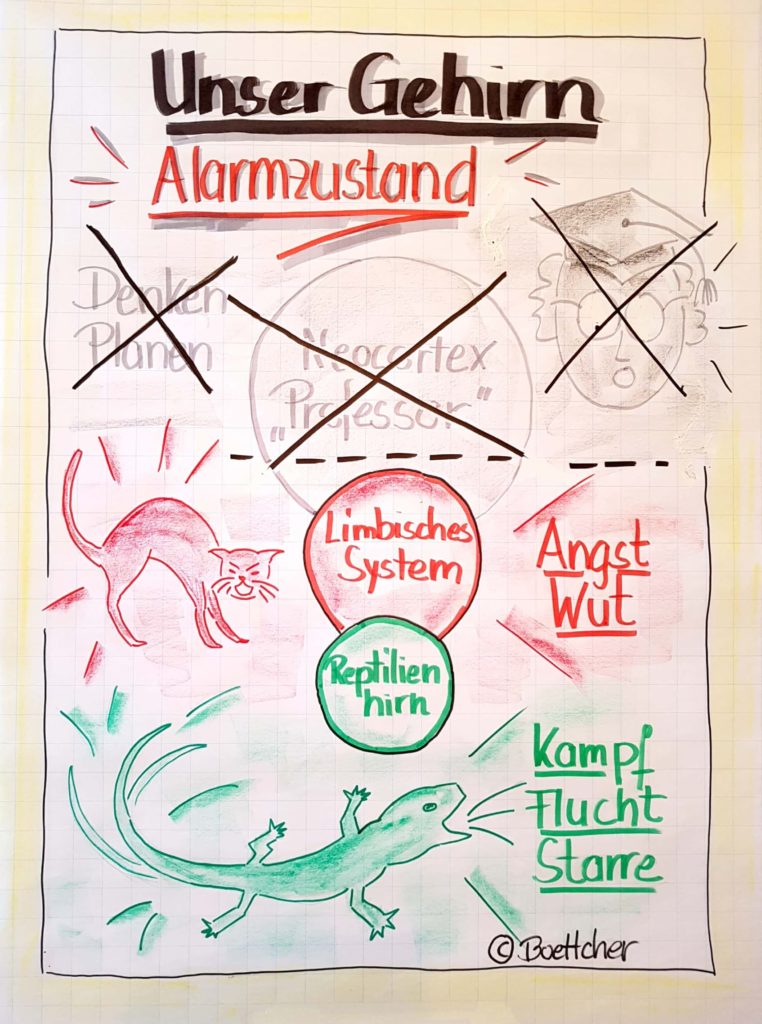 Unser Gehirn
Alarmzustand
Denken
Planen
Neocortex
„Professor"
Limbisches
System
Angst
Wut
Reptilien
hirn
Kampf
Flucht
Starre
© Boettcher